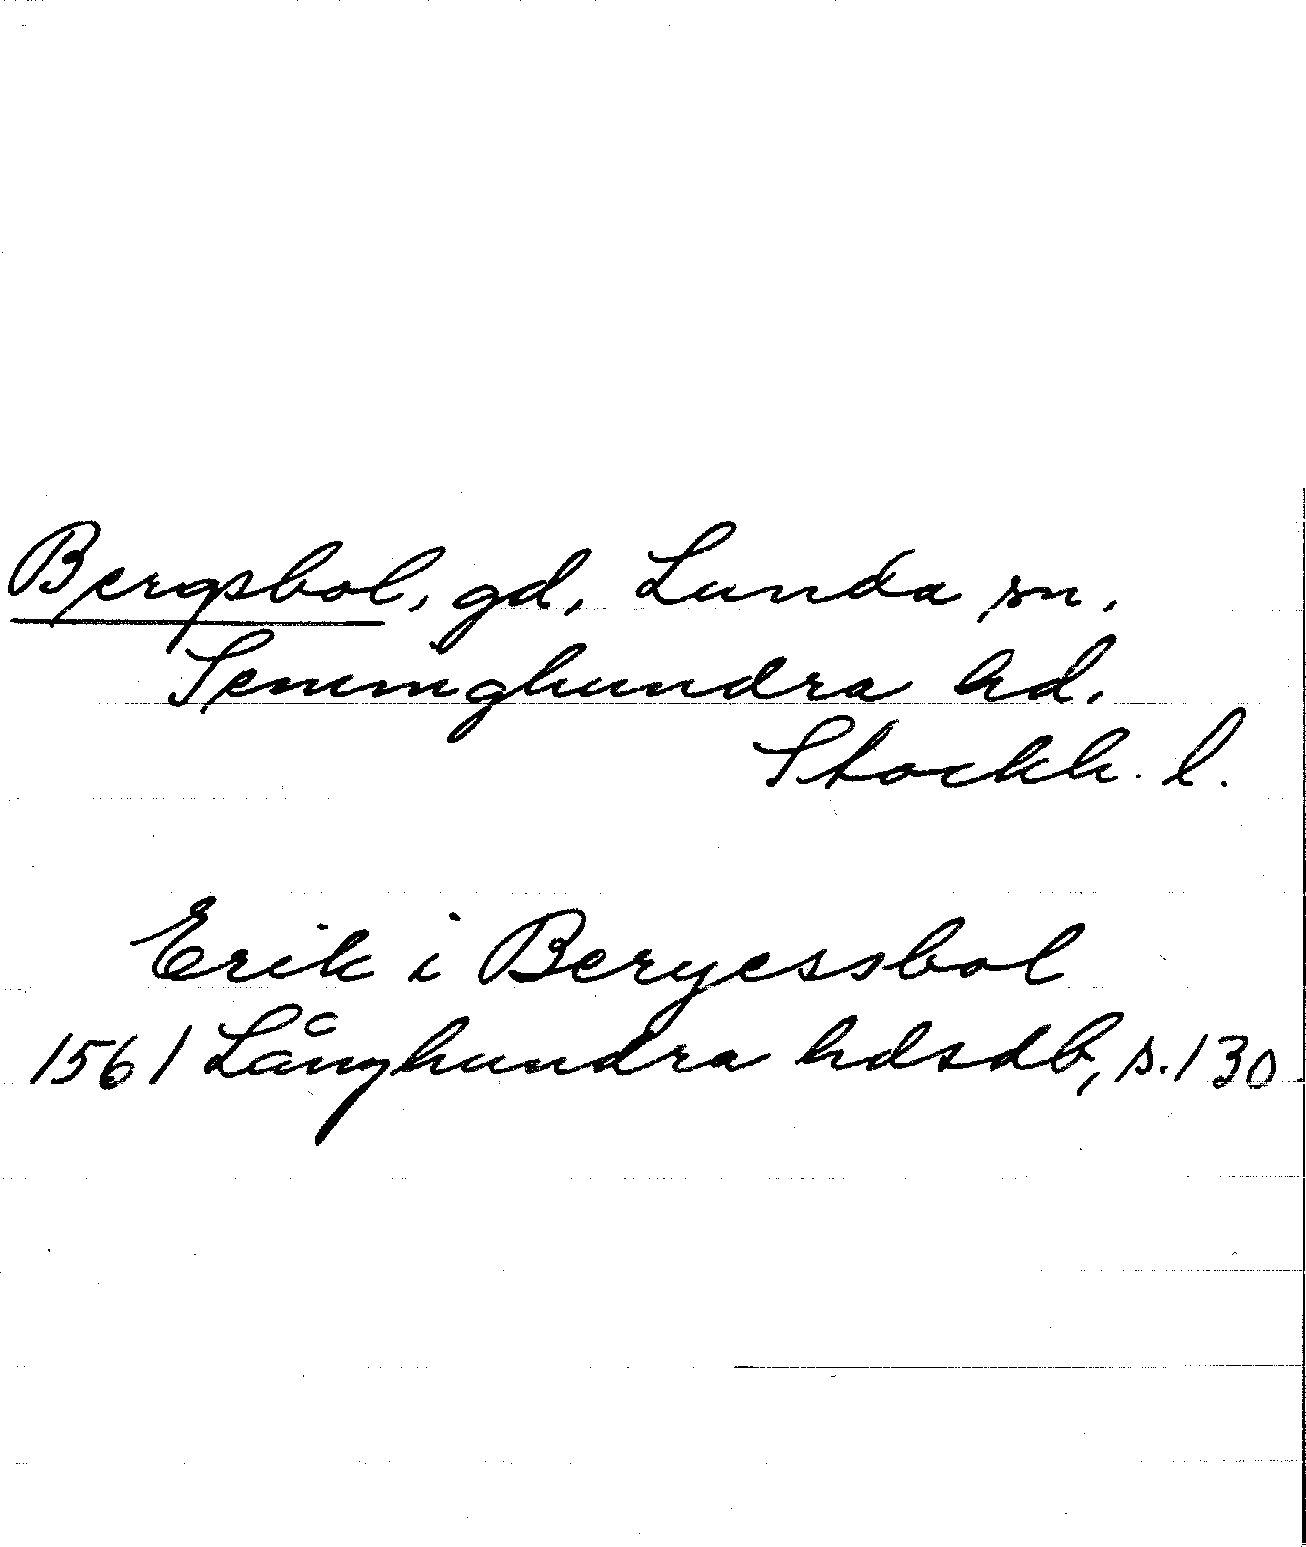 Bergsbol, gd, Lunda sn,
Seminghundra hd.
Stockh. l.
Erik i Beryessbol
1561 Långhundra hdsdb, s. 130